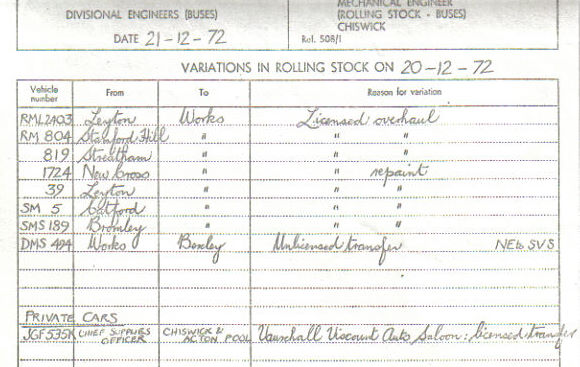 DIVISIONAL ENGINEERS (BUSES)
DATE 21-12-72
MECHANICAL ENGINEER
(ROLLING STOCK - BUSES)
CHISWICK
Ref. 508/1
VARIATIONS IN ROLLING STOCK ON 20-12-72
Vehicle number From To Reason for variation
RML2403 Leyton Works Licensed overhaul
RM 804 Stamford Hill " " "
819 Streatham " " "
1724 New Cross " " repaint
39 Leyton " " "
SM 5 Catford " " "
SMS 189 Bromley " " "
DMS 494 Works Bexley Unlicensed transfer NEW SVS
PRIVATE CARS
JGF535K CHIEF SUPPLIES OFFICER CHISWICK & ACTON POOL Vauxhall Viscount Auto Saloon: licensed transfer